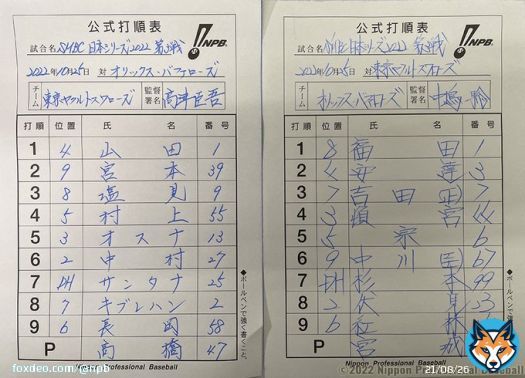 公式打順表
NPB
試合名 SMBC 日本シリーズ2022 第3戦
2022年10月25日 対 オリックス・バファローズ
チーム 東京ヤクルトスワローズ 監督署名 高津臣吾
打順 位置 氏 名 番号
1 4 山田 1
2 9 宮本 39
3 8 塩見 9
4 5 村上 55
5 3 オスナ 13
6 2 中村 27
7 DH サンタナ 25
8 7 キブレハン 2
9 6 長岡 58
P 高橋 47
●ボールペンで強く書くこと。
Nippon Professional Baseball
公式打順表
NPB
試合名 SMBC 日本シリーズ2022 第3戦
2022年10月25日 対 東京ヤクルトスワローズ
チーム オリックス・バファローズ 監督署名 中嶋 聡
打順 位置 氏 名 番号
1 8 福田 1
2 4 安達 3
3 7 吉田正 7
4 3 頓宮 44
5 5 宗 6
6 9 中川圭 67
7 DH 杉本 99
8 2 伏見 23
9 6 紅林
P 宮城
●ボールペンで強く書くこと
Nippon Professional Baseball
foxdeo.com/@npb
21/08/26
©2022 Nippon Professional Baseball